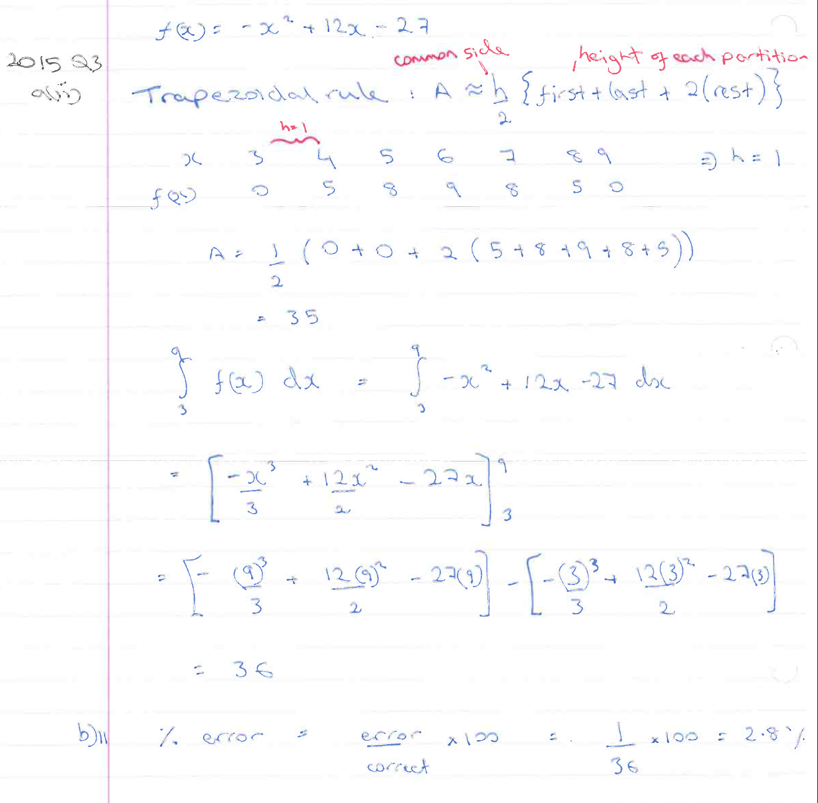 f(x) = -x² + 12x - 27
2015 Q3
a(ii)
common side
height of each partition
Trapezoidal rule : A ≈ h/2 {first + last + 2(rest)}
h=1
x 3 4 5 6 7 8 9 ⇒ h = 1
f(x) 0 5 8 9 8 5 0
A = 1/2 (0 + 0 + 2 (5 + 8 + 9 + 8 + 5))
= 35
∫₃⁹ f(x) dx = ∫₃⁹ -x² + 12x - 27 dx
= [-x³/3 + 12x²/2 - 27x]₃⁹
= [-(9)³/3 + 12(9)²/2 - 27(9)] - [-(3)³/3 + 12(3)²/2 - 27(3)]
= 36
b)ii % error = error/correct × 100 = 1/36 × 100 = 2.8%